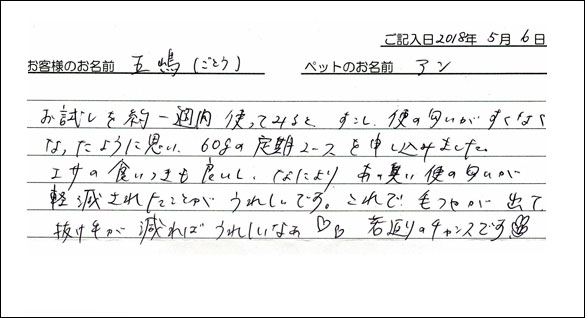 ご記入日2018年5月6日
お客様のお名前 五嶋(ごとう) ペットのお名前 アン
お試しを約一週間使ってみると すこし、便の匂いがすくなく
なったように思い、60gの定期コースを申し込みました。
エサの食いつきも良いし、なにより あの臭い便の匂いが
軽減されたことが うれしいです。これで毛つやが出て
抜け毛が減ればうれしいなぁ♡♡ 若返りのチャンスです